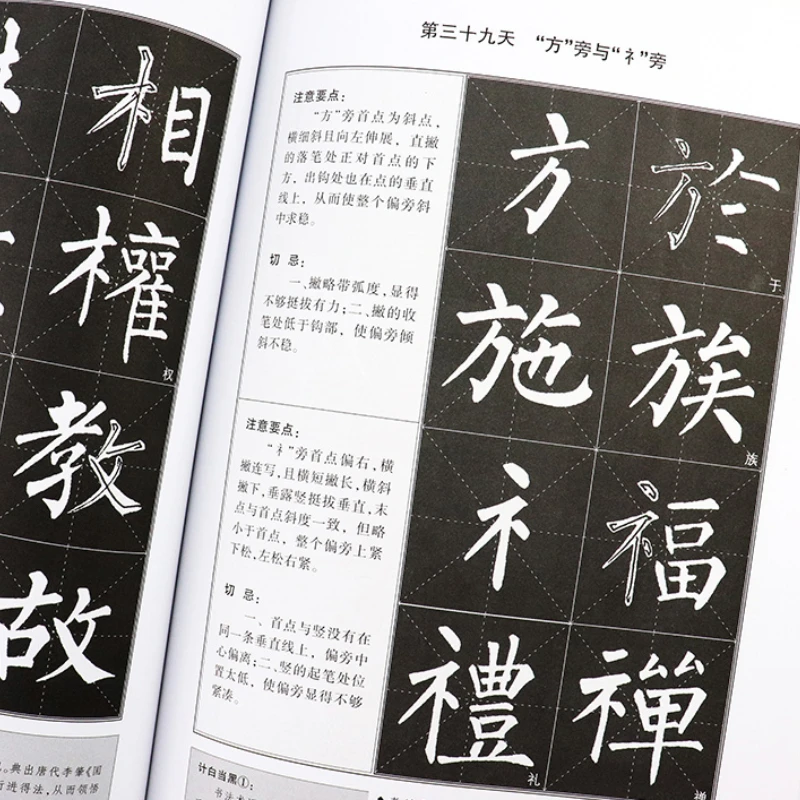 相
權
权
教
故
典出唐代李肇《国
行进得法，从而领悟
第三十九天 “方”旁与“礻”旁
注意要点：
“方”旁首点为斜点，
横细斜且向左伸展，直撇
的落笔处正对首点的下
方，出钩处也在点的垂直
线上，从而使整个偏旁斜
中求稳。
切 忌：
一、撇略带弧度，显得
不够挺拔有力；二、撇的收
笔处低于钩部，使偏旁倾
斜不稳。
注意要点：
“礻”旁首点偏右，横
撇连写，且横短撇长，横斜
撇下，垂露竖挺拔垂直，末
点与首点斜度一致，但略
小于首点，整个偏旁上紧
下松，左松右紧。
切 忌：
一、首点与竖没有在
同一条垂直线上，偏旁中
心偏离；二、竖的起笔处位
置太低，使偏旁显得不够
紧凑。
方 於
于
施 族
族
礻 福
禮 禪
礼 禅
计白当黑①：
书法